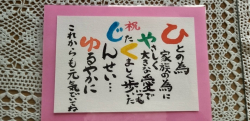 ひとの為
家族の為に
やさしく
大きな愛で
祝
たくましく歩った
じんせい…
ゆるやかに
これからも元気でネ